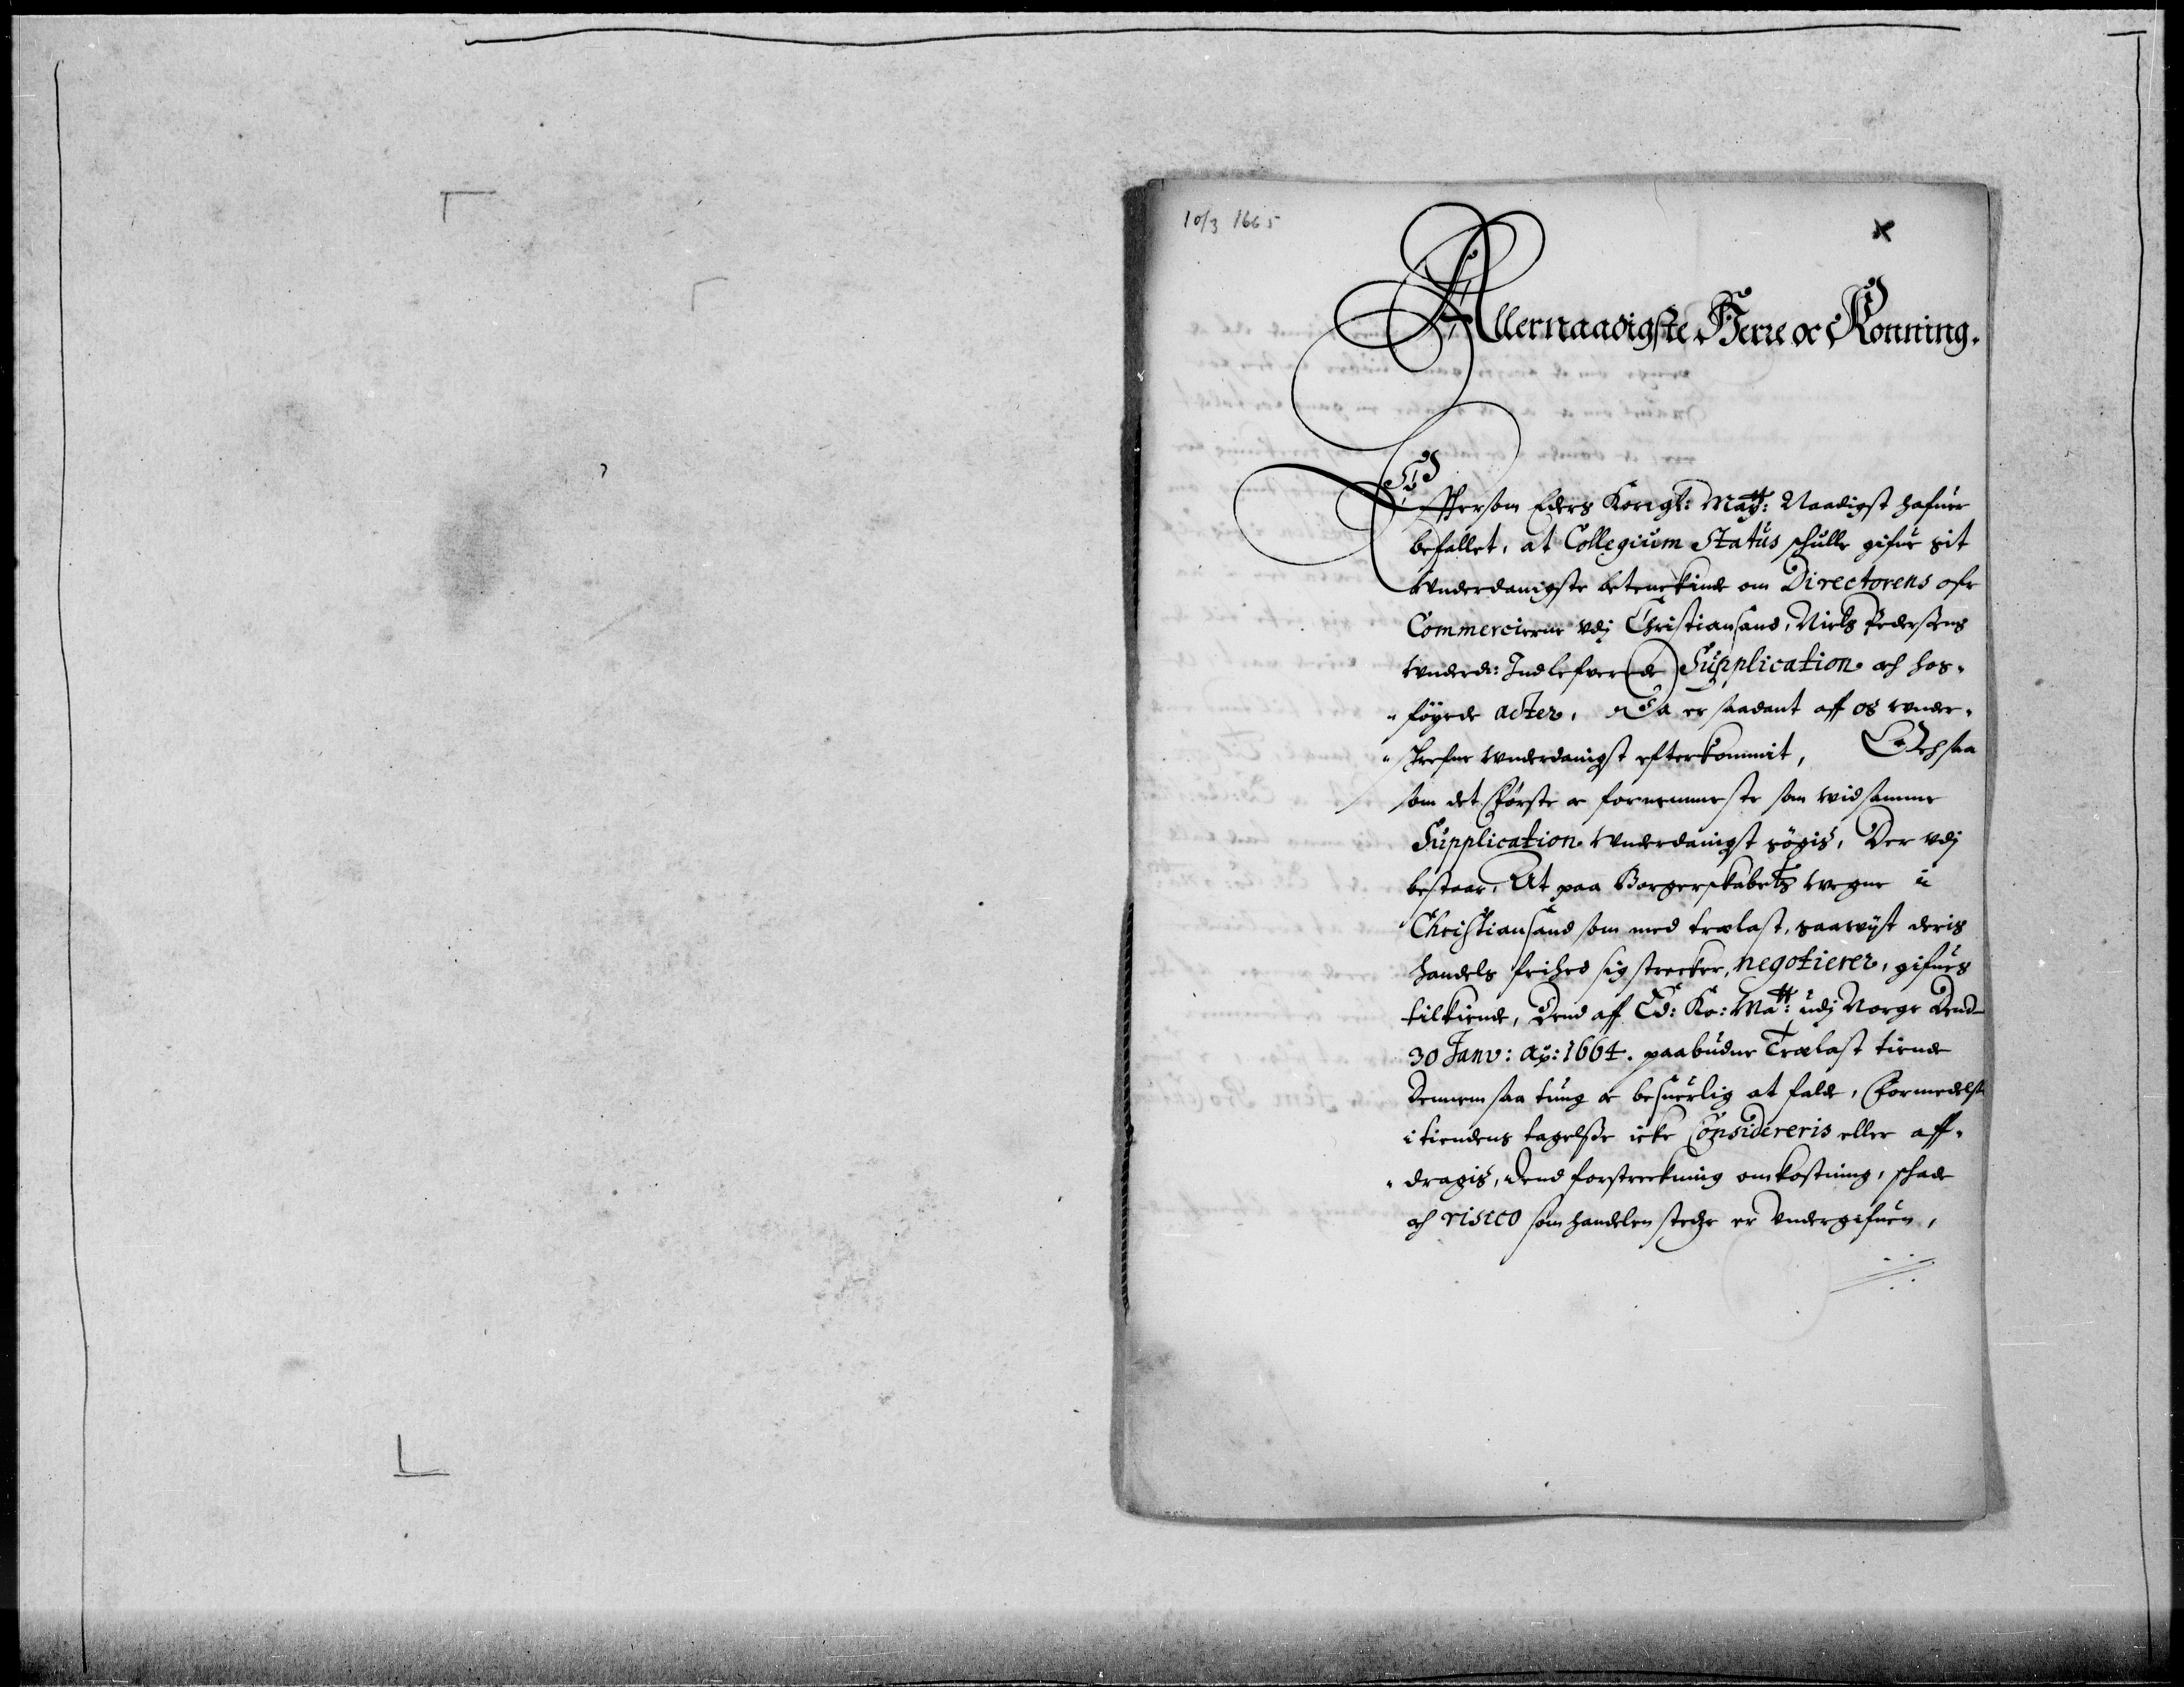 10/3 1665
Allernaadigste Herre oc Konning.
Effterson Eders Konigl: Maytt: Naadigst hafuer
befallet, at Collegium Status schulle gifue sit
Vnderdanigste betenckinde om Directorens ofr
Commercierne vdj Christiansand, Niels Pedersens
Vnderd: Indlefverede Supplication och hos-
-föyede acter, Da er saadant aff os under-
-skrefne Vnderdanigst efterkommit, Och saa
som det Første oc fornemmeste som wid samme
Supplication Vnderdanigst søgis, Der vdj
bestaar, At paa Borgerskabets wegne i
Christiansand som med trælast, saawijt deris
handels frihed sig strecker, negotierer, gifues
tilkiende, Dend aff Ed: Ko: Matt: udj Norge Dend
30 Janv: Ao: 1664. paabudne Trælast tiende
Dennem saa tung oc besuerlig at falde, Formedelst
i tiendens tagelsse icke Considereris eller aff-
-dragis, Dend forstreckning omkostning, schade
och risico som handelen stedze er Vndergifuen,